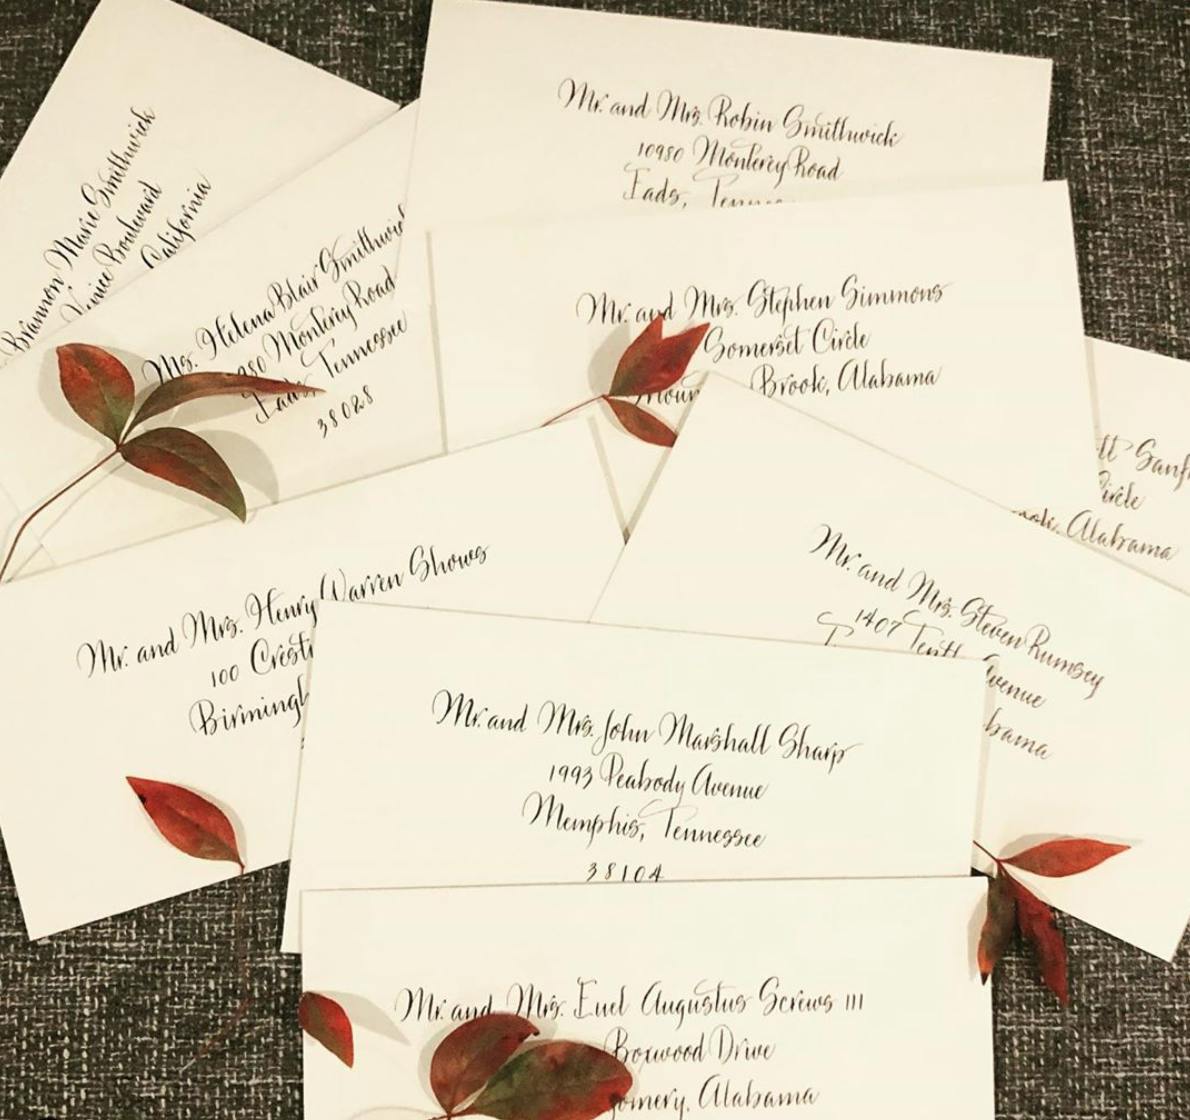 Brannon Marie Smithwick
Venice Boulevard
California
Mr. and Mrs. Robin Smithwick
10980 Monterey Road
Eads, Tennes
Ms. Helena Blair Smithwick
980 Monterey Road
Eads, Tennessee
38028
Mr. and Mrs. Stephen Simmons
Somerset Circle
Moun Brook, Alabama
tt Sanf
Circle
ook, Alabama
Mr. and Mrs. Henry Warren Shows
100 Crest
Birmingh
Mr. and Mrs. Steven Rumsey
1407 Tenth Avenue
T bama
Mr. and Mrs. John Marshall Sharp
1993 Peabody Avenue
Memphis, Tennessee
38104
Mr. and Mrs. Euel Augustus Screws III
Boxwood Drive
gomery, Alabama